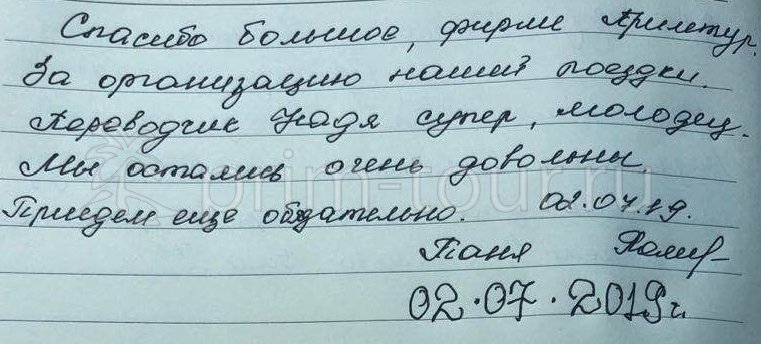 Спасибо большое, фирме Примтур.
За организацию нашей поездки.
Переводчик Надя супер, молодец.
Мы остались очень довольны.
Приедем еще обязательно. 02.07.19.
Таня
02.07.2019г.
prim-tour.ru